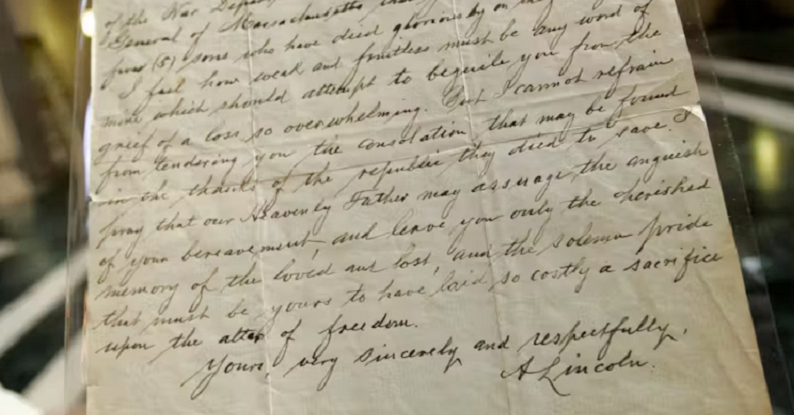 of the War
General of Massachusetts that
five (5) sons who have died gloriously on the
I feel how weak and fruitless must be any word of
mine which should attempt to beguile you from the
grief of a loss so overwhelming. But I cannot refrain
from tendering you the consolation that may be found
in the thanks of the republic they died to save. I
pray that our Heavenly Father may assuage the anguish
of your bereavement, and leave you only the cherished
memory of the loved and lost, and the solemn pride
that must be yours to have laid so costly a sacrifice
upon the altar of freedom.
Yours very sincerely and respectfully,
A Lincoln.